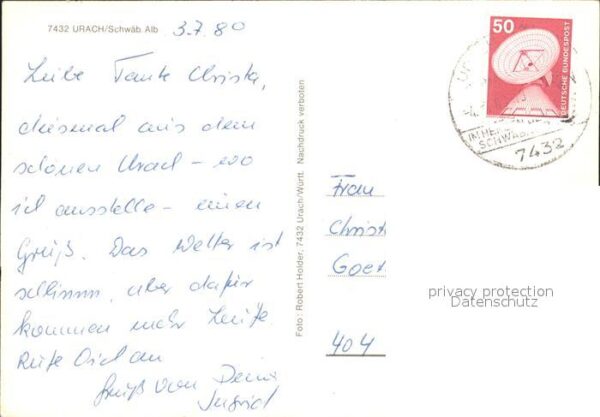 7432 URACH/Schwäb. Alb
3.7.80
Liebe Tante Christa,
diesmal aus dem
schönen Urach – wo
ich ausstelle – einen
Gruß. Das Wetter ist
schlimm, aber dafür
kommen mehr Leute.
Rufe Dich an
Gruß von Deiner
Ingrid
Foto: Robert Holder, 7432 Urach/Württ. Nachdruck verboten
50
DEUTSCHE BUNDESPOST
IM HER
SCHWÄB
7432
Frau
Christ
Goet
privacy protection
Datenschutz
404